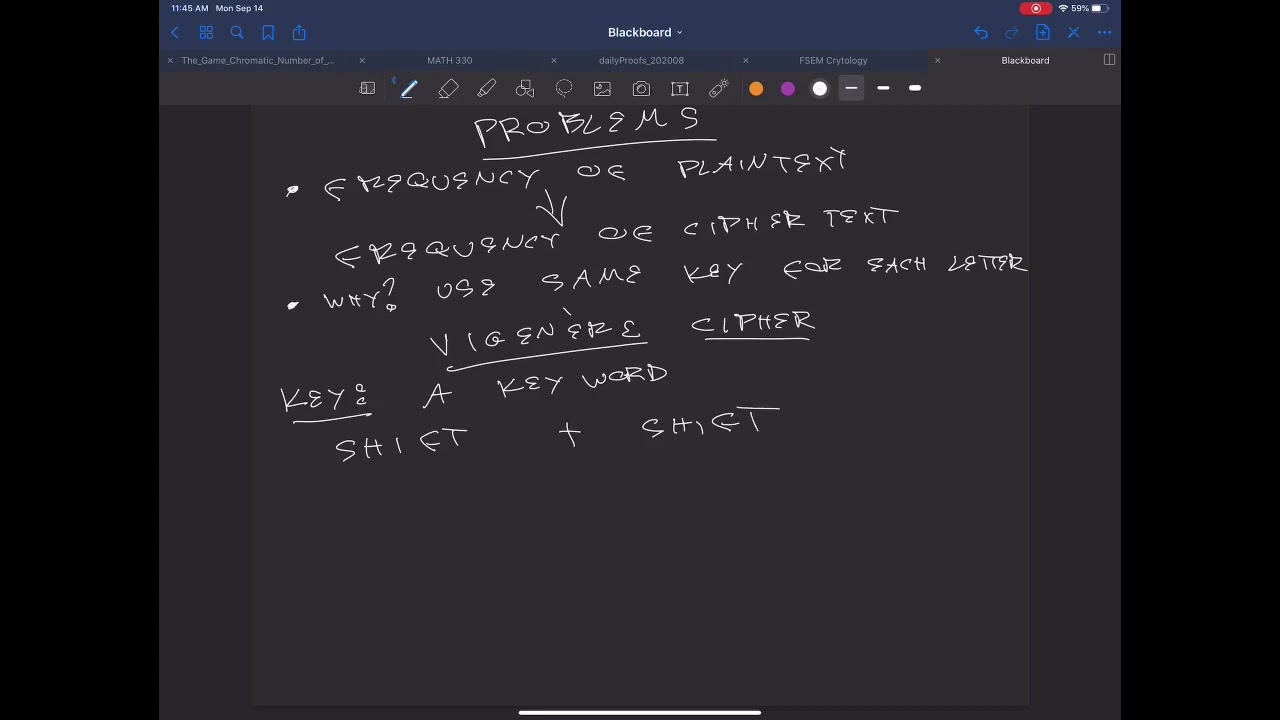 11:45 AM Mon Sep 14
59%
Blackboard
The_Game_Chromatic_Number_of_...
MATH 330
dailyProofs_202008
FSEM Crytology
Blackboard
PROBLEMS
• FREQUENCY OF PLAINTEXT
FREQUENCY OF CIPHER TEXT
• WHY? USE SAME KEY FOR EACH LETTER
VIGENÈRE CIPHER
KEY: A KEY WORD
SHIFT + SHIFT